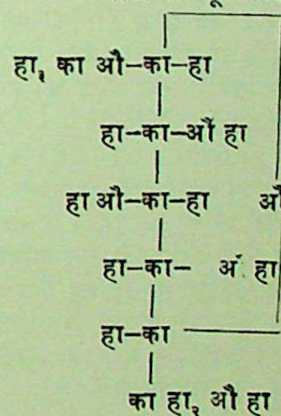 हा₃ का औ-का-हा
हा-का-औ हा
हा औ-का-हा औ
हा-का- अं हा
हा-का
का हा₂ औ हा